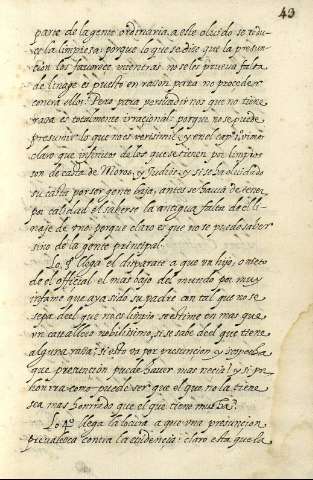 43
parte de la gente ordinaria, a este olvido se redu-
ce la limpiesa: porque lo que se dise que la presun-
tion los favorece mientras no se les prueva falta
de linaje es puesto en rason para no proceder
contra ellos. Pero para persuadirnos que no tiene
rasa es totalmente irracional: porque no se puede
presumir lo que no es verisimil: y en el cap. 1. vimos
claro que infinitos de los que se tienen por limpios
son de casta de Moros, y Judios: y si se ha olvidado
su casta por ser gente baja, antes se havia de tener
por calidad el saberse la antigua falta de el li-
naje de uno: porque claro es que no se puede saber
sino de la gente principal.
Lo 3º llega el disparate a que un hijo, o nieto
de el official el mas bajo del mundo por muy
infame que aya sido su padre con tal que no se
sepa del que no es limpio se estime en mas que
un cavallero nobilissimo, si se sabe del que tiene
alguna rasa; si esto va por presuncion y sospecha
que presuncion puede haver mas necia? y si por
honra como puede ser que el que no la tiene
sea mas honrrado que el que tiene mucha?
Lo 4º llega la locura a que una presuncion
prevalesca contra la evidencia: claro esta que la